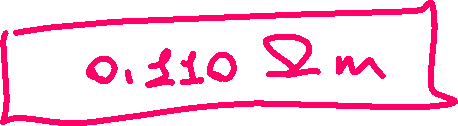 0.110 Ωm